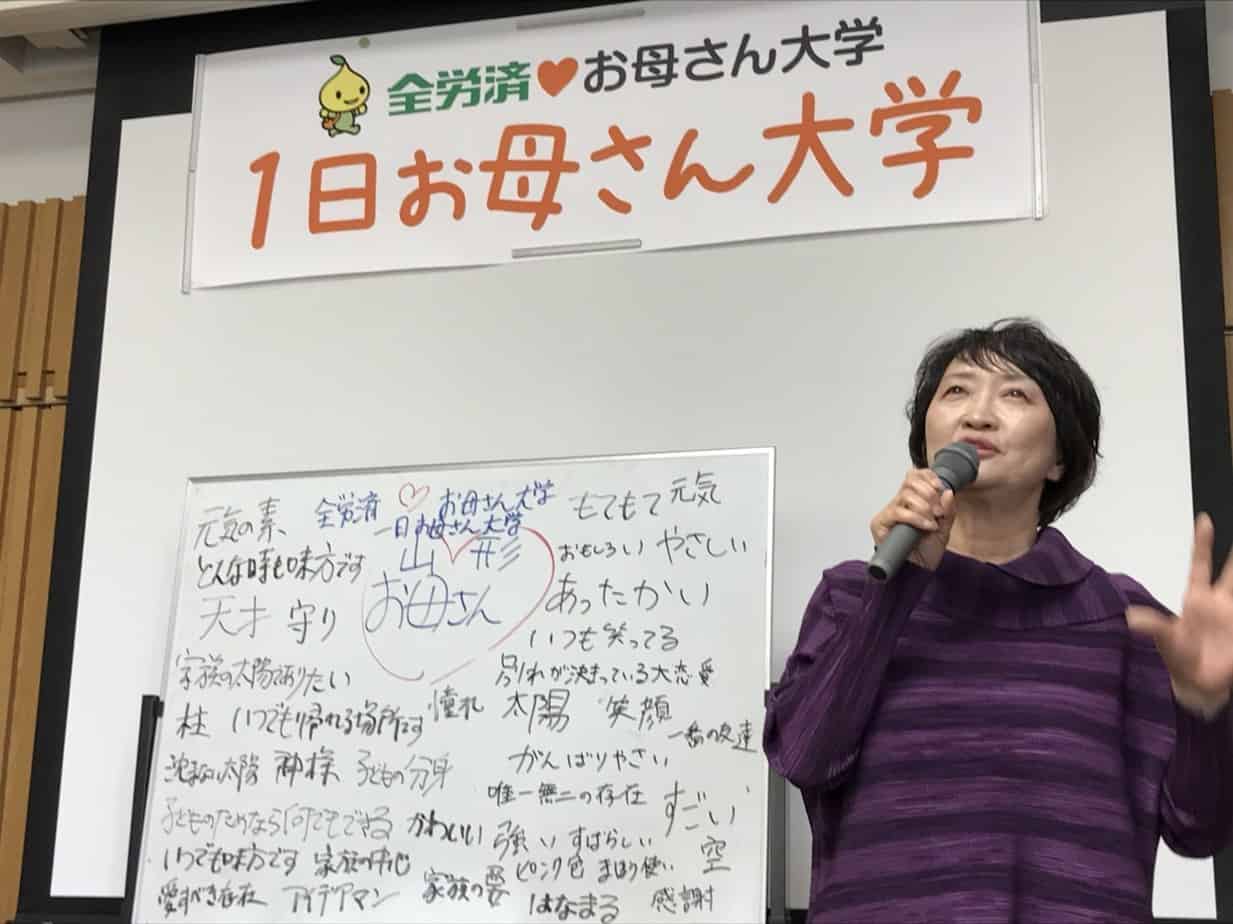 全労済♥お母さん大学
1日お母さん大学
元気の素、 全労済 ♡ お母さん大学 もてもて 元気
一日お母さん大学
どんな時も味方です 山♡形 おもしろい やさしい
天才 守り お母さん あったかい
いつも笑ってる
家族の太陽でありたい 別れが決まっている大恋愛
柱 いつでも帰れる場所です 憧れ 太陽 笑顔 一番の友達
沈まぬ太陽 神様 子どもの分身 がんばりやさい
唯一無二の存在 すごい
子どものためなら何でもできる かわいい 強い すばらしい 空
いつでも味方です 家族の中心 ピンク色 まほう使い
愛すべき存在 アイデアマン 家族の要 はなまる 感謝